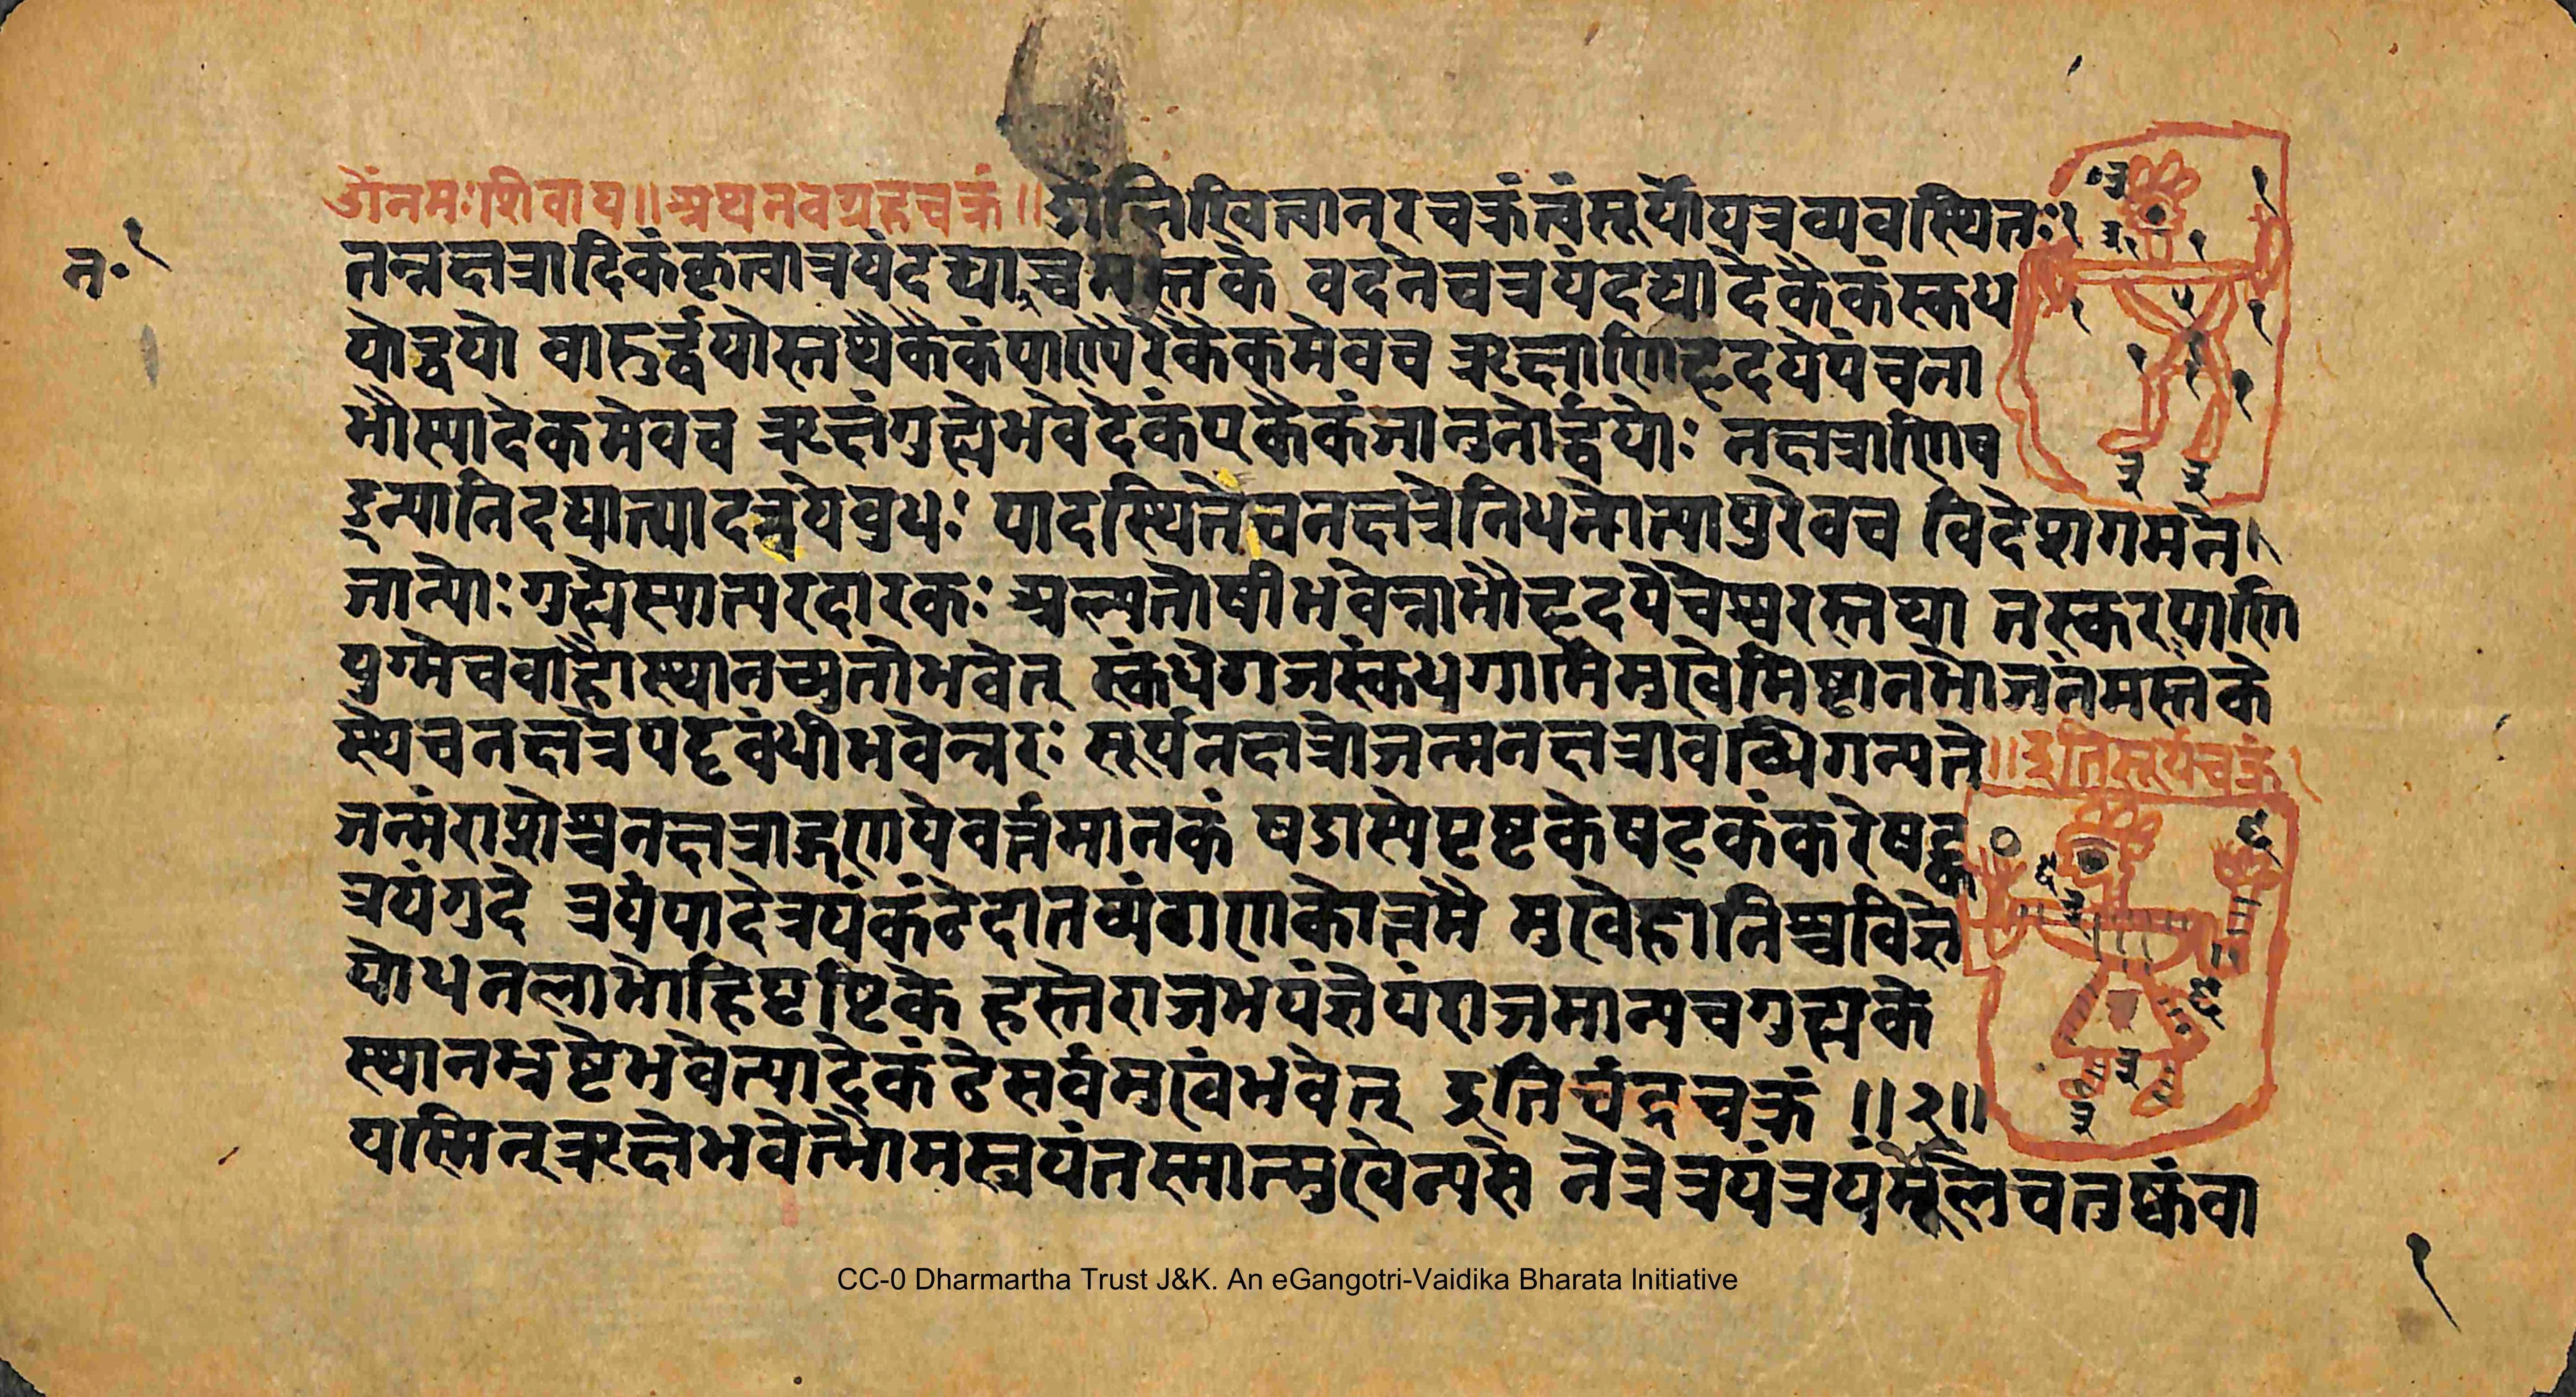 ॐनमःशिवाय॥अथनवग्रहचक्रं॥ॐलिखित्वानरचक्रंत्वंसूर्योयत्रव्यवस्थितः
न॰१
तन्नक्षत्रादिकंकृत्वात्रयंदद्याच्चमस्तके वदनेचत्रयंदद्यादेकैकंस्कध
योर्द्वयो वाहुर्द्वयोस्तथैकैकंपाण्योरेकैकमेवच ऋक्षाणिहृदयेपंचना
भौस्यादेकमेवच ऋक्षंगुह्येभवेदेकंएकैकंजानुनोर्द्वयोः नक्षत्राणिष
डन्यानिदद्यात्पादद्वयेवुधः पादस्थितेचनक्षत्रेनिधनोत्पापुरेवच विदेशगमने
जान्योःगुह्येस्यात्परदारकः अल्पतोषीभवेन्नाभौहृदयेचेश्वरस्तथा तस्करपाणि
युग्मेचवाहौस्थानच्युतोभवेत् स्कंधेगजस्कंधगामिमुखेमिष्टानभोजनंमस्तके
स्थेचनक्षत्रेपट्टवंधीभवेन्नरः सूर्यनक्षत्रोजन्मनक्षत्रावधिगन्यते॥इतिसूर्यचक्रं
जन्मंराशेश्चनक्षत्राद्गणयेवर्त्तमानकं षडास्येपृष्टकेषट्कंकरेषट्क
त्रयंगुदे त्रयंपादेत्रयंकंठेदातव्यंगणकोत्तमै मुखेहानिश्चविज्ञे
योधनलाभोहिपृष्टिके हस्तेराजभयंज्ञेयंराजमान्यचगुह्यके
स्थानभ्रष्टेभवेत्पादेकंठेसर्वसुखंभवेत् इतिचंद्रचक्रं ॥२॥
यस्मिन्ऋक्षेभवेत्भौमस्त्रयंतस्मान्मुखेन्यसे नेत्रेत्रयंत्रयंमूलेचतष्कंवा
१
CC-0 Dharmartha Trust J&K. An eGangotri-Vaidika Bharata Initiative